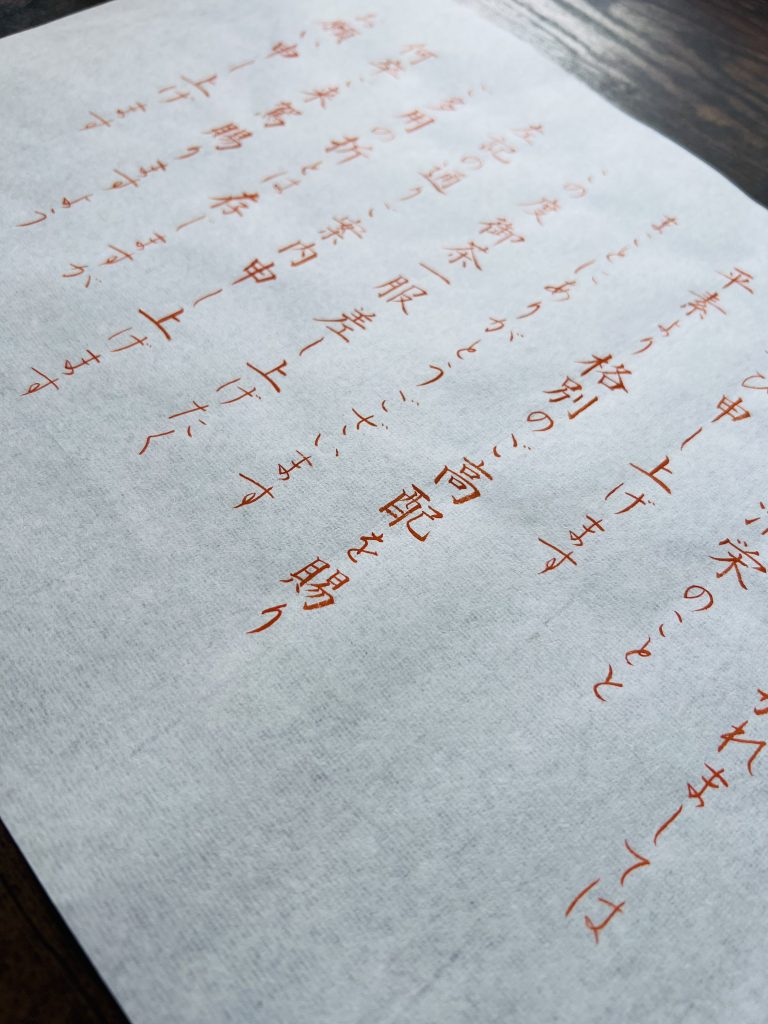 かれましては
清栄のことと
び申し上げます
平素より格別のご高配を賜り
まことにありがとうございます
この度御茶一服差し上げたく
左記の通りご案内申し上げます
ご多用の折とは存じますが
何卒ご来駕賜りますよう
お願い申し上げます